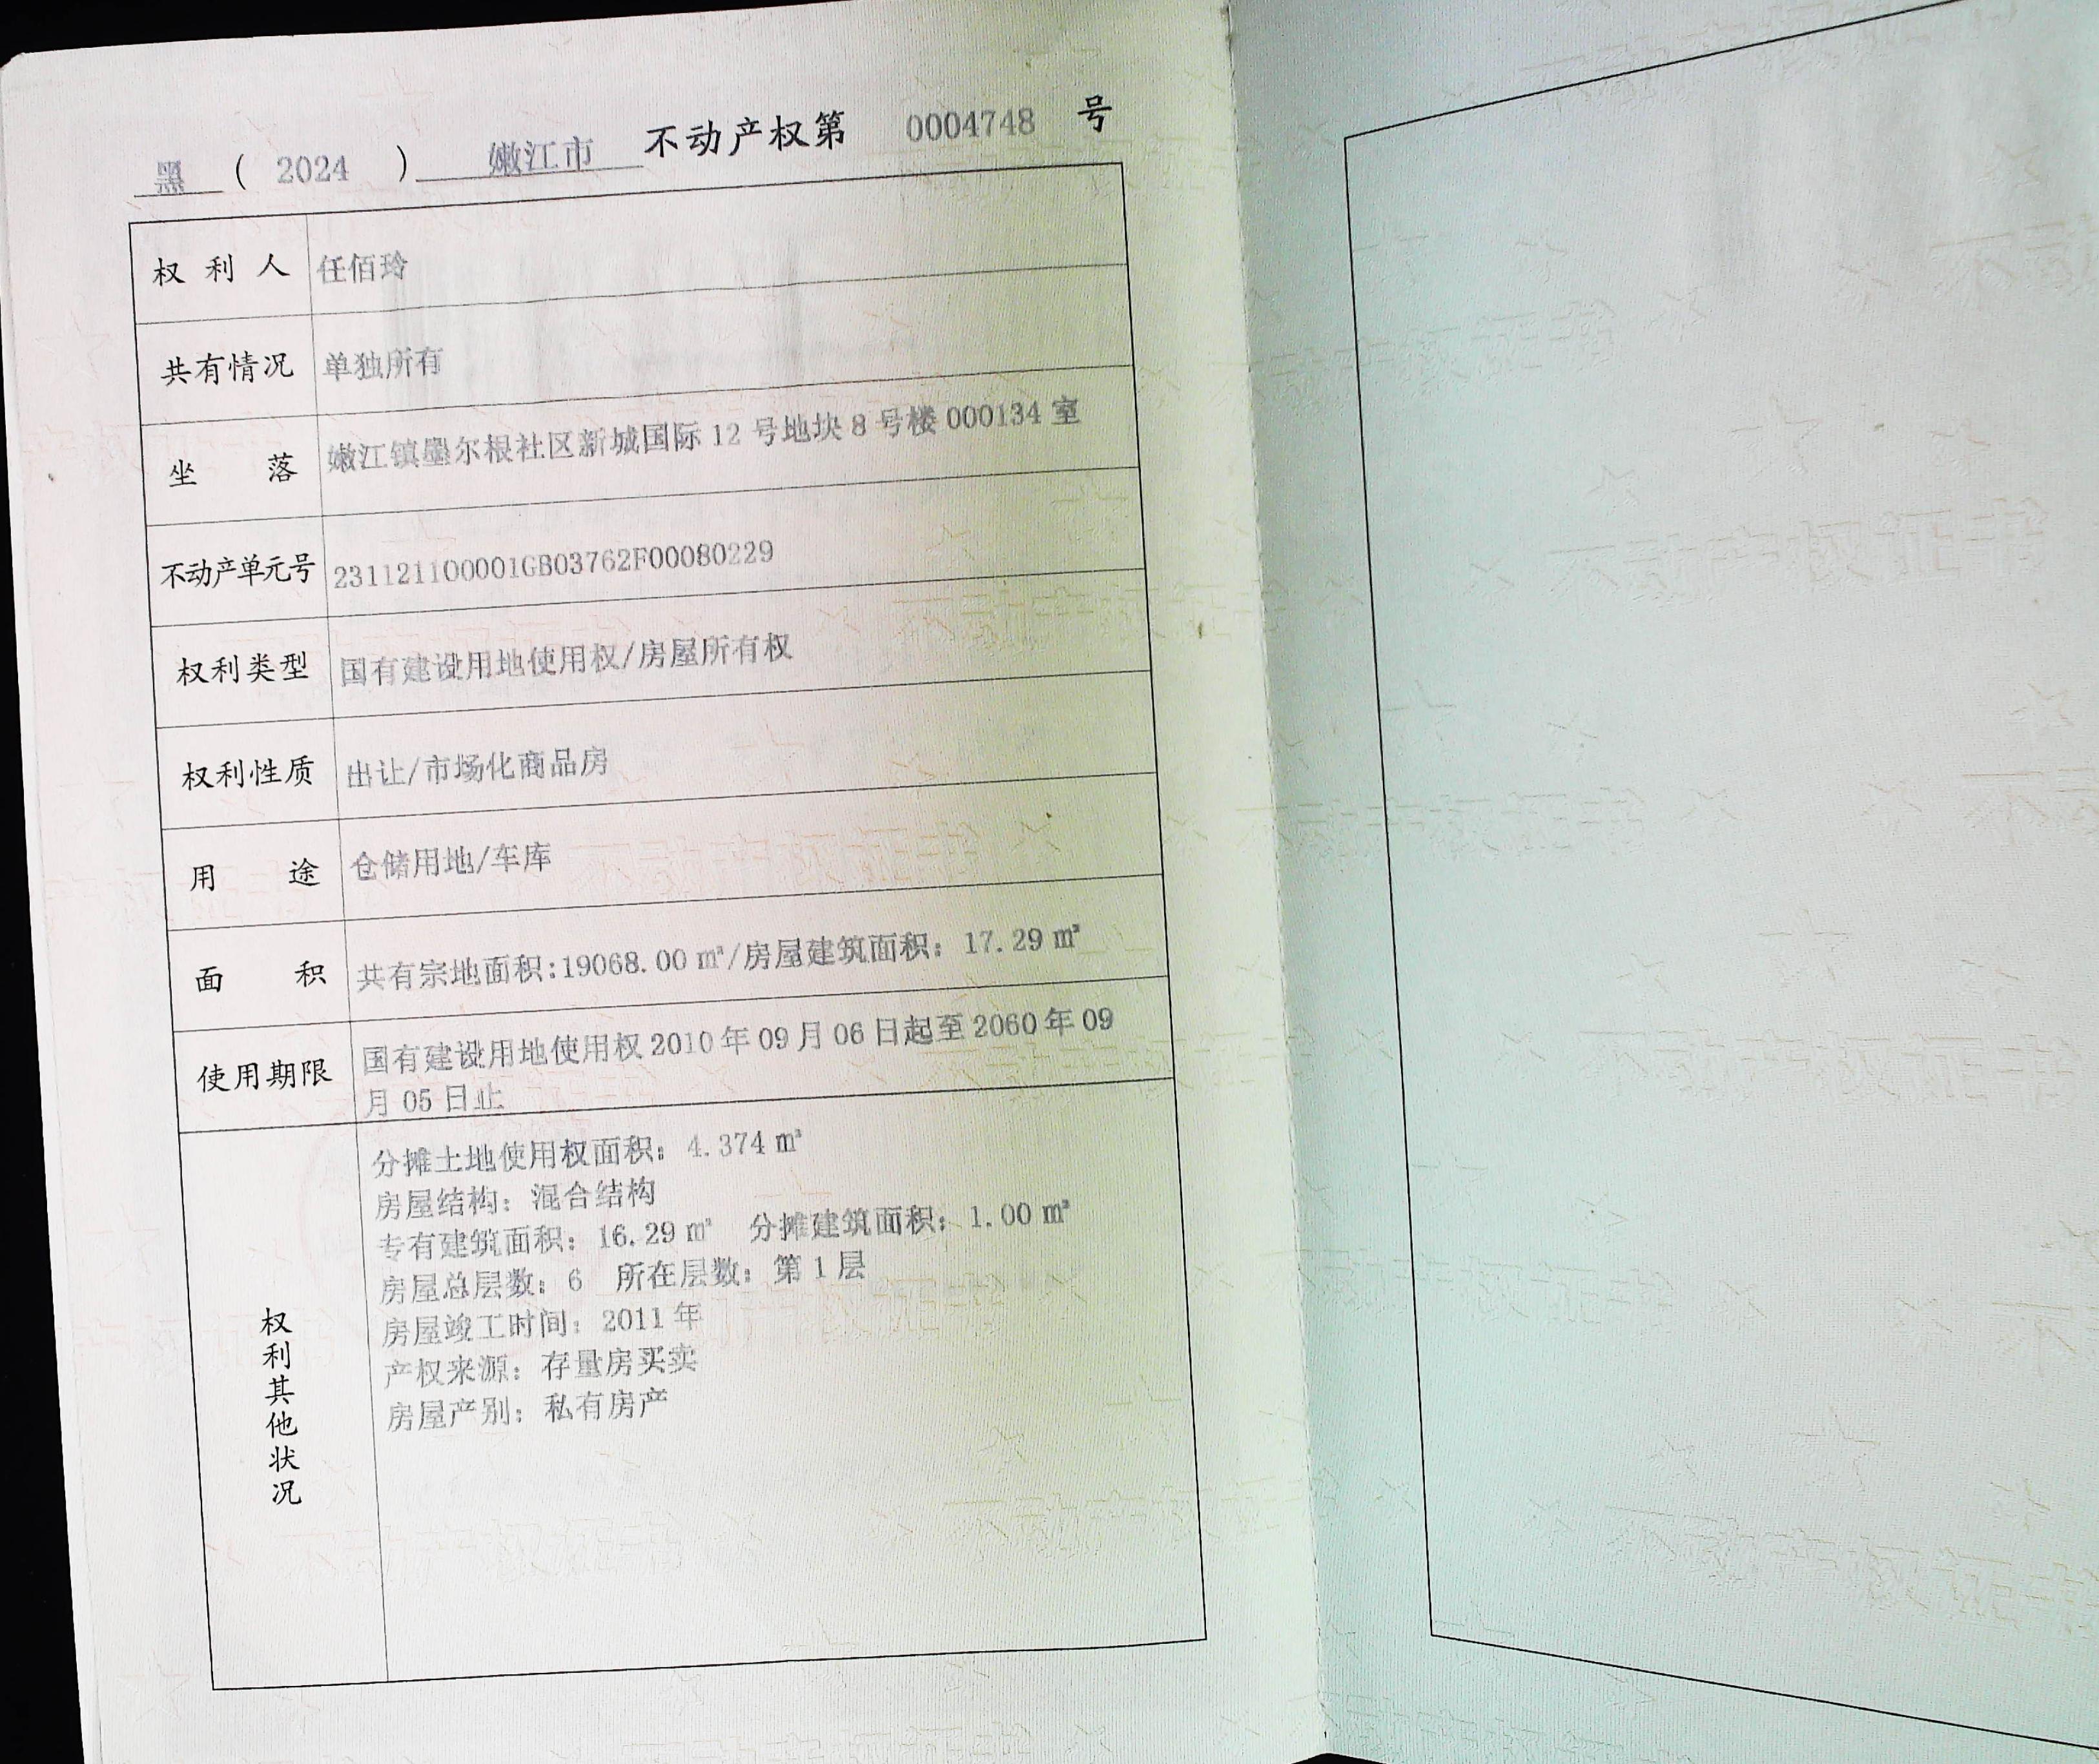 黑 ( 2024 ) 嫩江市 不动产权第 0004748 号
权利人 任佰玲
共有情况 单独所有
坐落 嫩江镇墨尔根社区新城国际 12 号地块 8 号楼 000134 室
不动产单元号 231121100001GB03762F00080229
权利类型 国有建设用地使用权/房屋所有权
权利性质 出让/市场化商品房
用途 仓储用地/车库
面积 共有宗地面积:19068.00 ㎡/房屋建筑面积: 17.29 ㎡
使用期限 国有建设用地使用权 2010 年 09 月 06 日起至 2060 年 09
月 05 日止
权利其他状况
分摊土地使用权面积: 4.374 ㎡
房屋结构: 混合结构
专有建筑面积: 16.29 ㎡ 分摊建筑面积: 1.00 ㎡
房屋总层数: 6 所在层数: 第 1 层
房屋竣工时间: 2011 年
产权来源: 存量房买卖
房屋产别: 私有房产